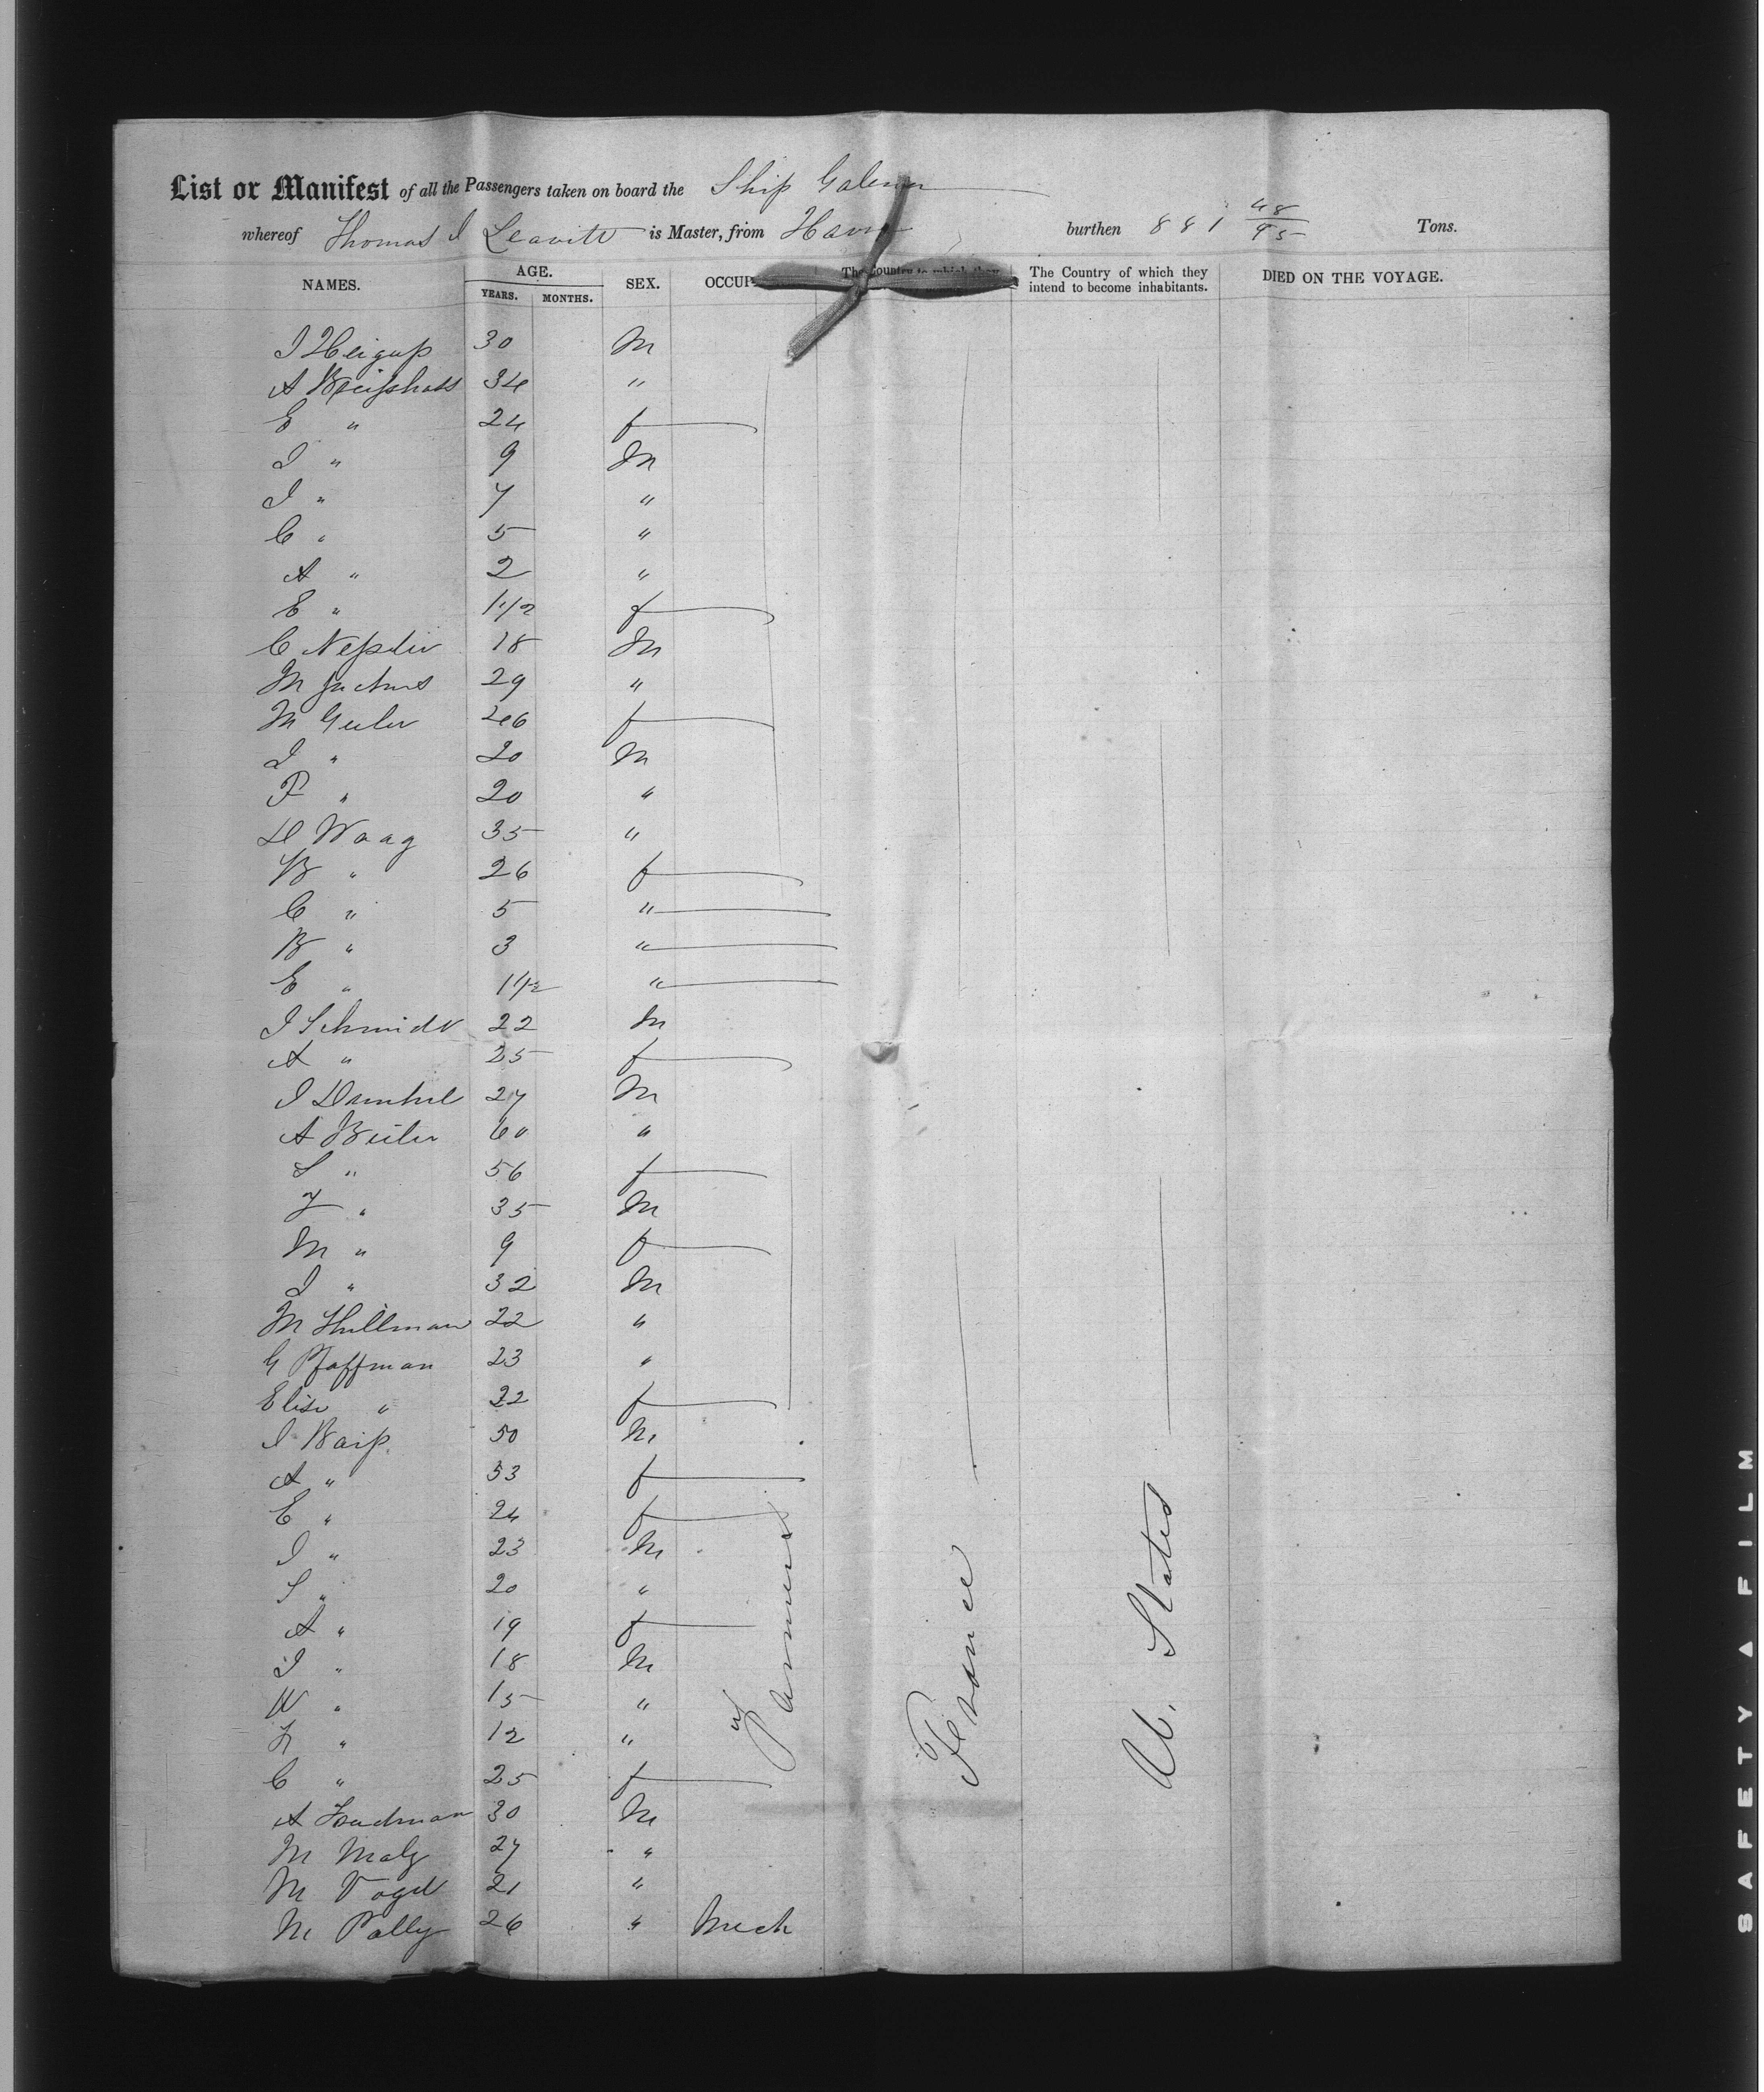 List or Manifest of all the Passengers taken on board the Ship Galena
whereof Thomas I Leavitt is Master, from Havre burthen 881 48/95 Tons.
NAMES. AGE. YEARS. MONTHS. SEX. OCCUP The Country to which they The Country of which they intend to become inhabitants. DIED ON THE VOYAGE.
I 30 M
A 34 "
E " 24 f
I " 9 M
I " 7 "
C " 5 "
A " 2 "
E " 1 1/2 f
C 18 M
M 29 "
M Geiler 46 f
I " 20 M
P " 20 "
D Waag 35 "
B " 26 f
C " 5 "
B " 3 "
E " 1 1/2 "
I Schmidt 22 M
A " 25 f
I 27 M
A Beiler 60 "
S " 56 f
F " 35 M
M " 9 f
I " 32 M
M Hillman 22 "
G Pfaffman 23 "
Elise " 22 f
I Baiß 50 M
A " 53 f
E " 24 f
I " 23 M
S " 20 "
A " 19 f
I " 18 M
W " 15 "
L " 12 "
C " 25 f
A 30 M
M Malz 27 "
M Vogel 21 "
M Pally 26 " Mech
Farmers
France
U. States
SAFETY A FILM